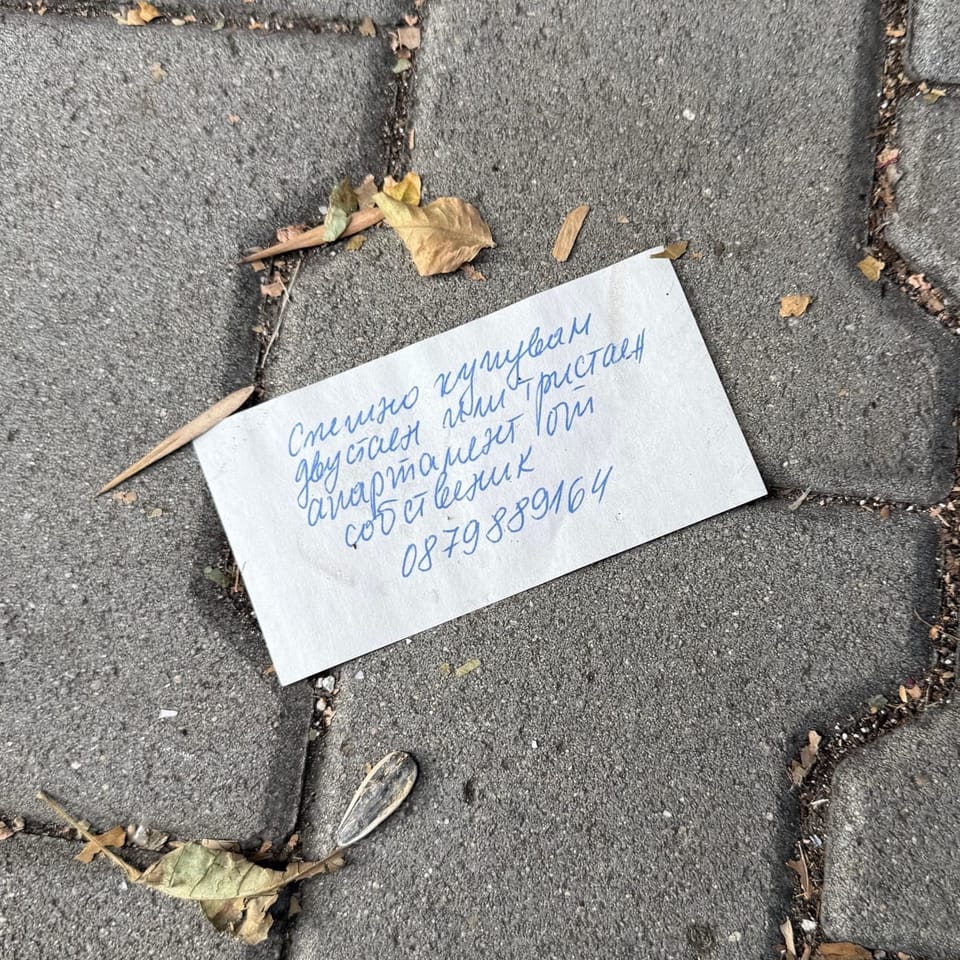 Спешно купувам
двустаен или тристаен
апартамент от
собственик
0879889164